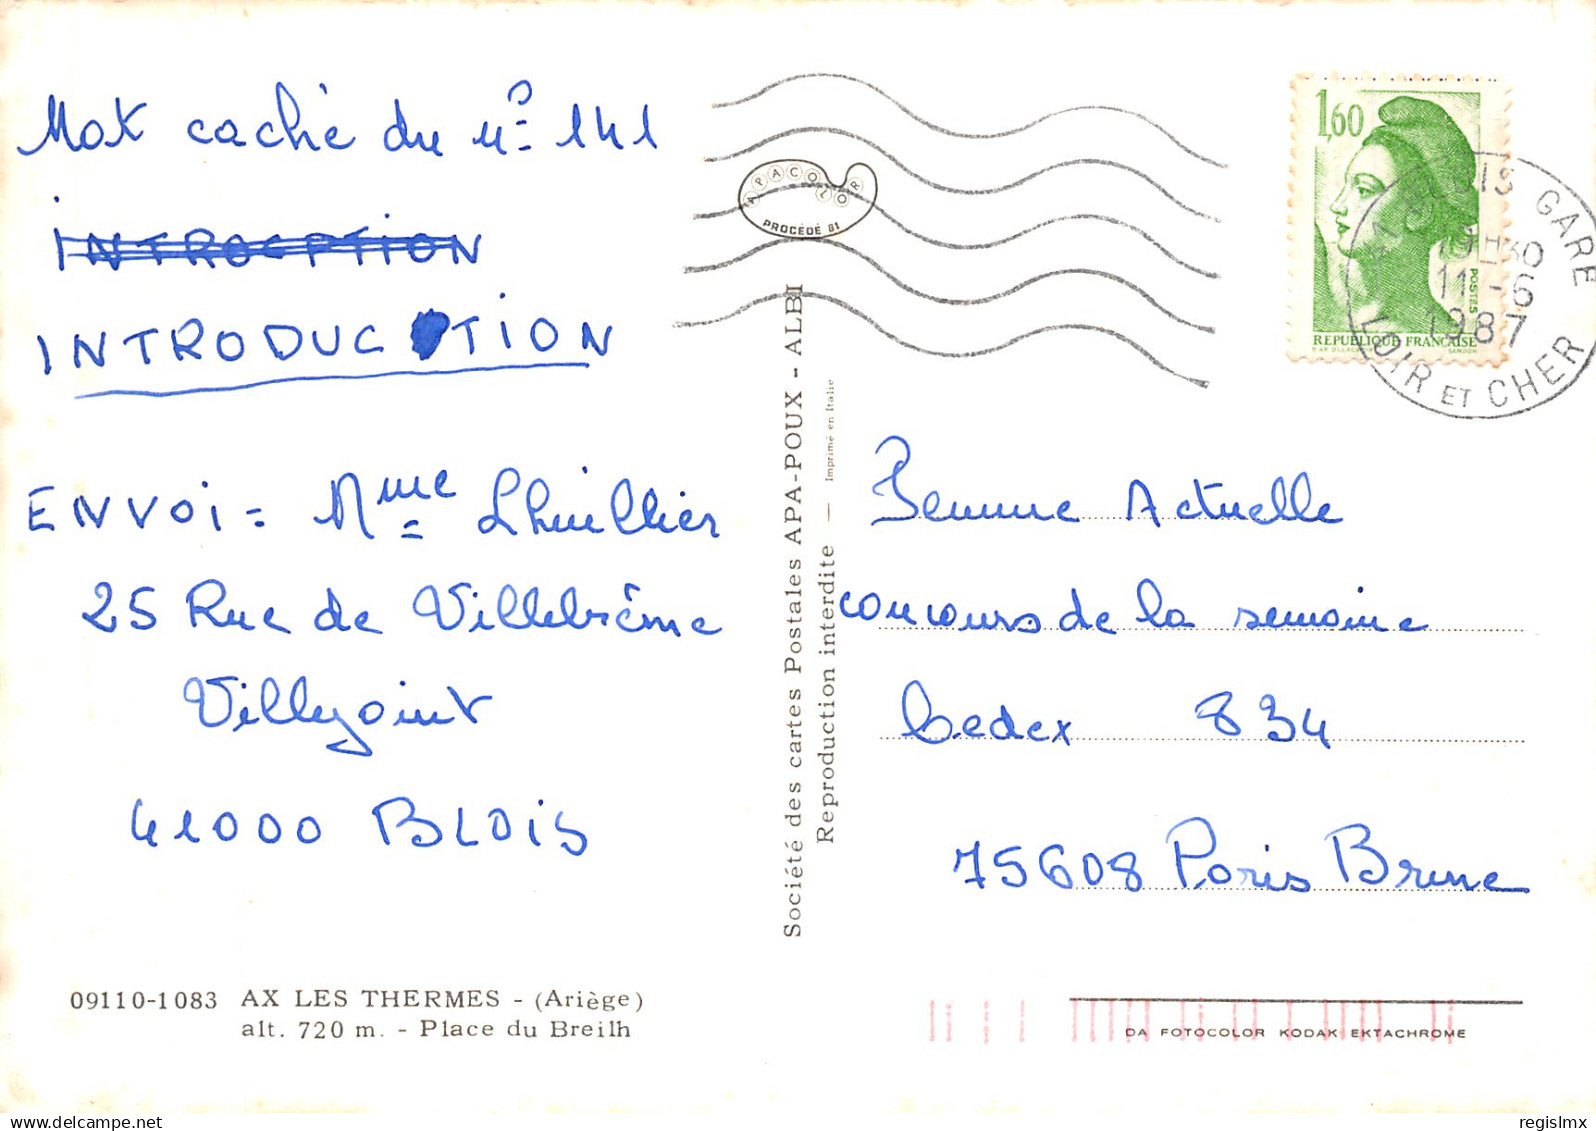 Mot caché du n° 141
INTROCPTION
INTRODUCTION
ENVOI = Mme Lhuillier
25 Rue de Villebrême
Villejoint
41000 BLOIS
09110-1083 AX LES THERMES - (Ariège)
alt. 720 m. - Place du Breilh
Société des cartes Postales APA-POUX - ALBI
Reproduction interdite — Imprimé en Italie
APACOLOR
PROCÉDÉ 81
1,60
POSTES
REPUBLIQUE FRANÇAISE
GARE
19H30
11-6
1987
LOIR ET CHER
Femme Actuelle
concours de la semaine
Cedex 834
75608 Paris Brune
DA FOTOCOLOR KODAK EKTACHROME
regislmx